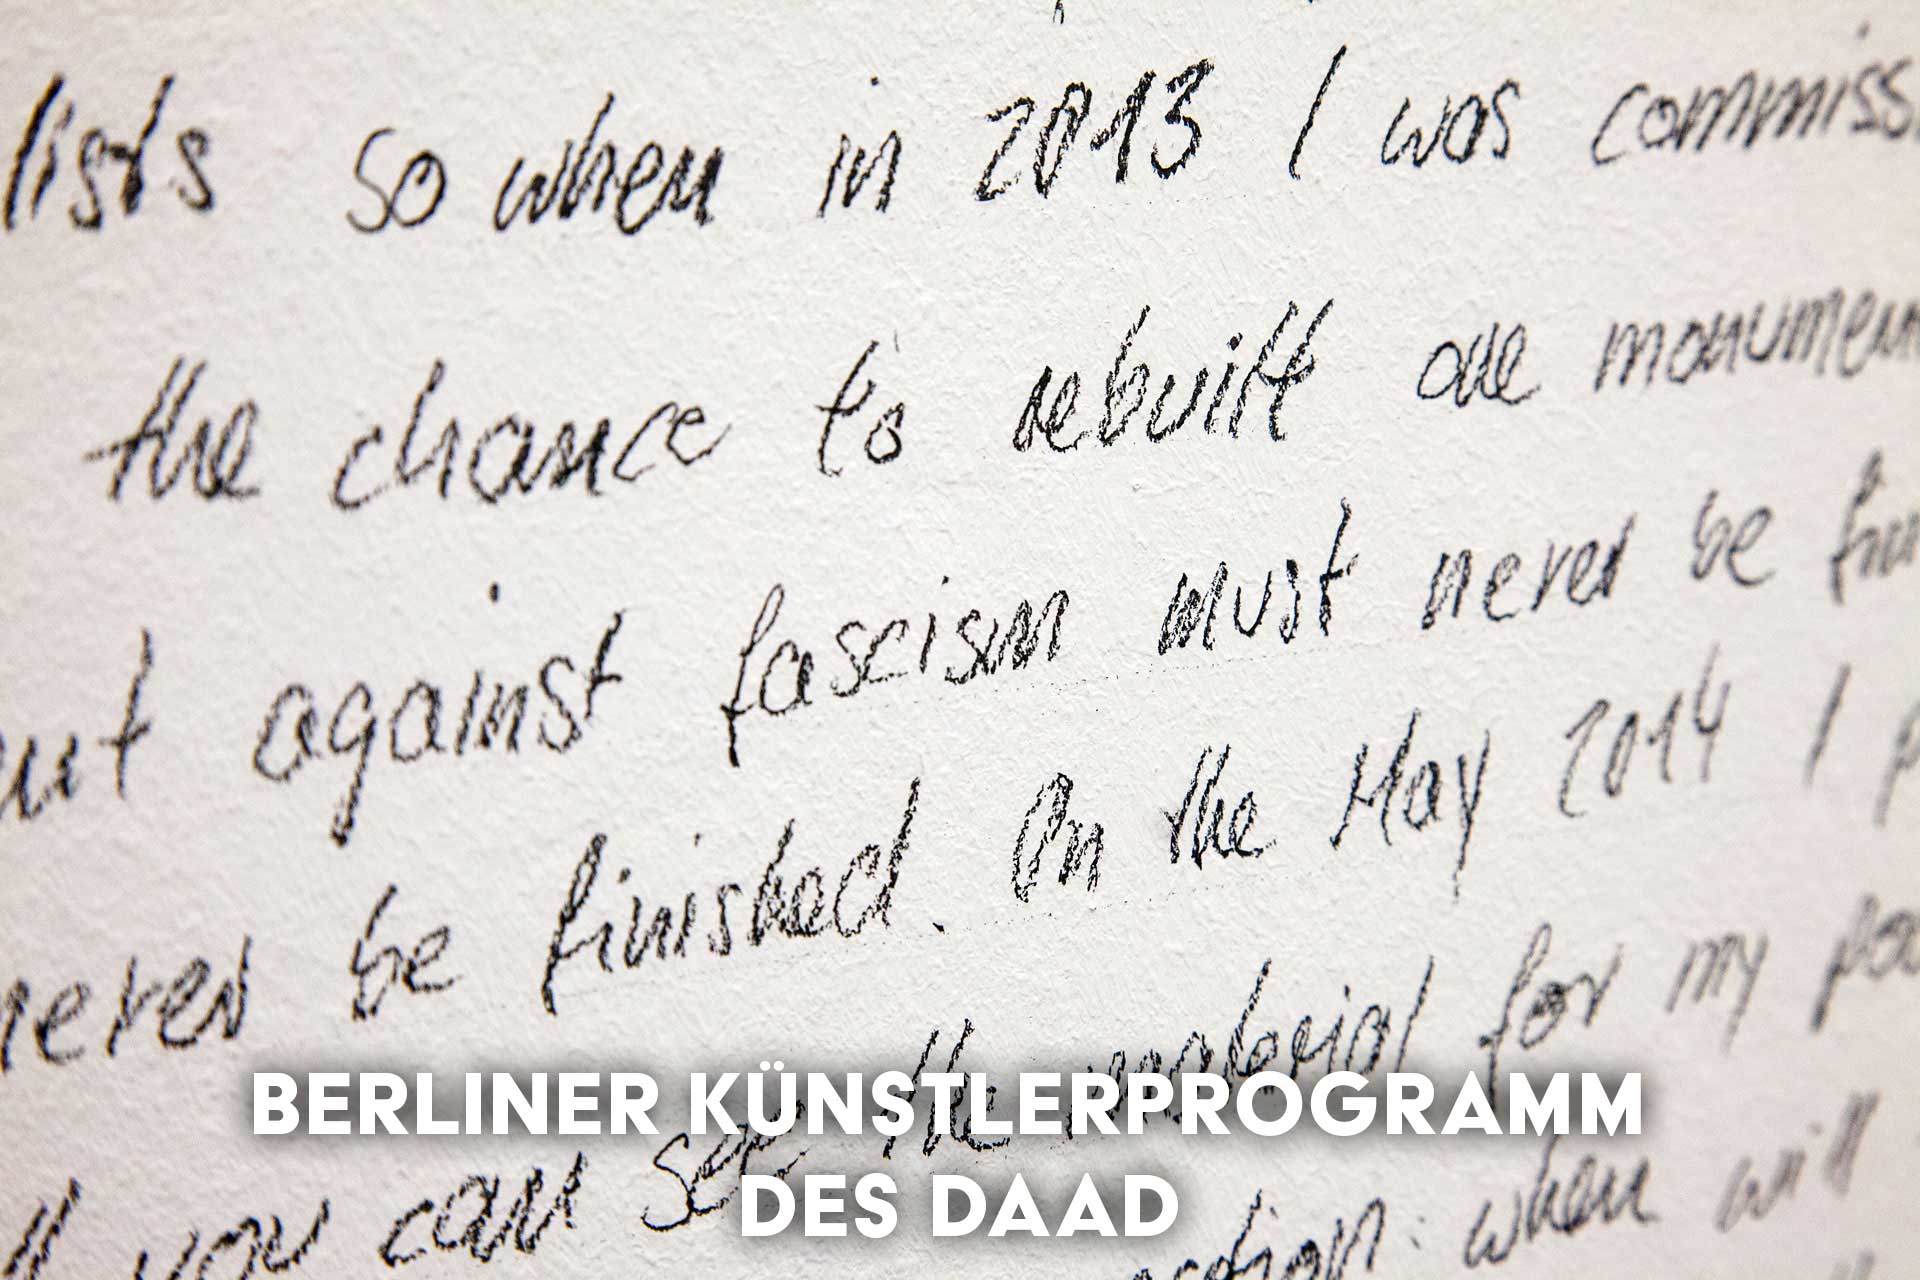 lists so when in 2013 I was commiss
the chance to rebuilt one monumen
against fascism must never be
never be finished. On the May 2014 I
you can see the material for my
when will
BERLINER KÜNSTLERPROGRAMM
DES DAAD